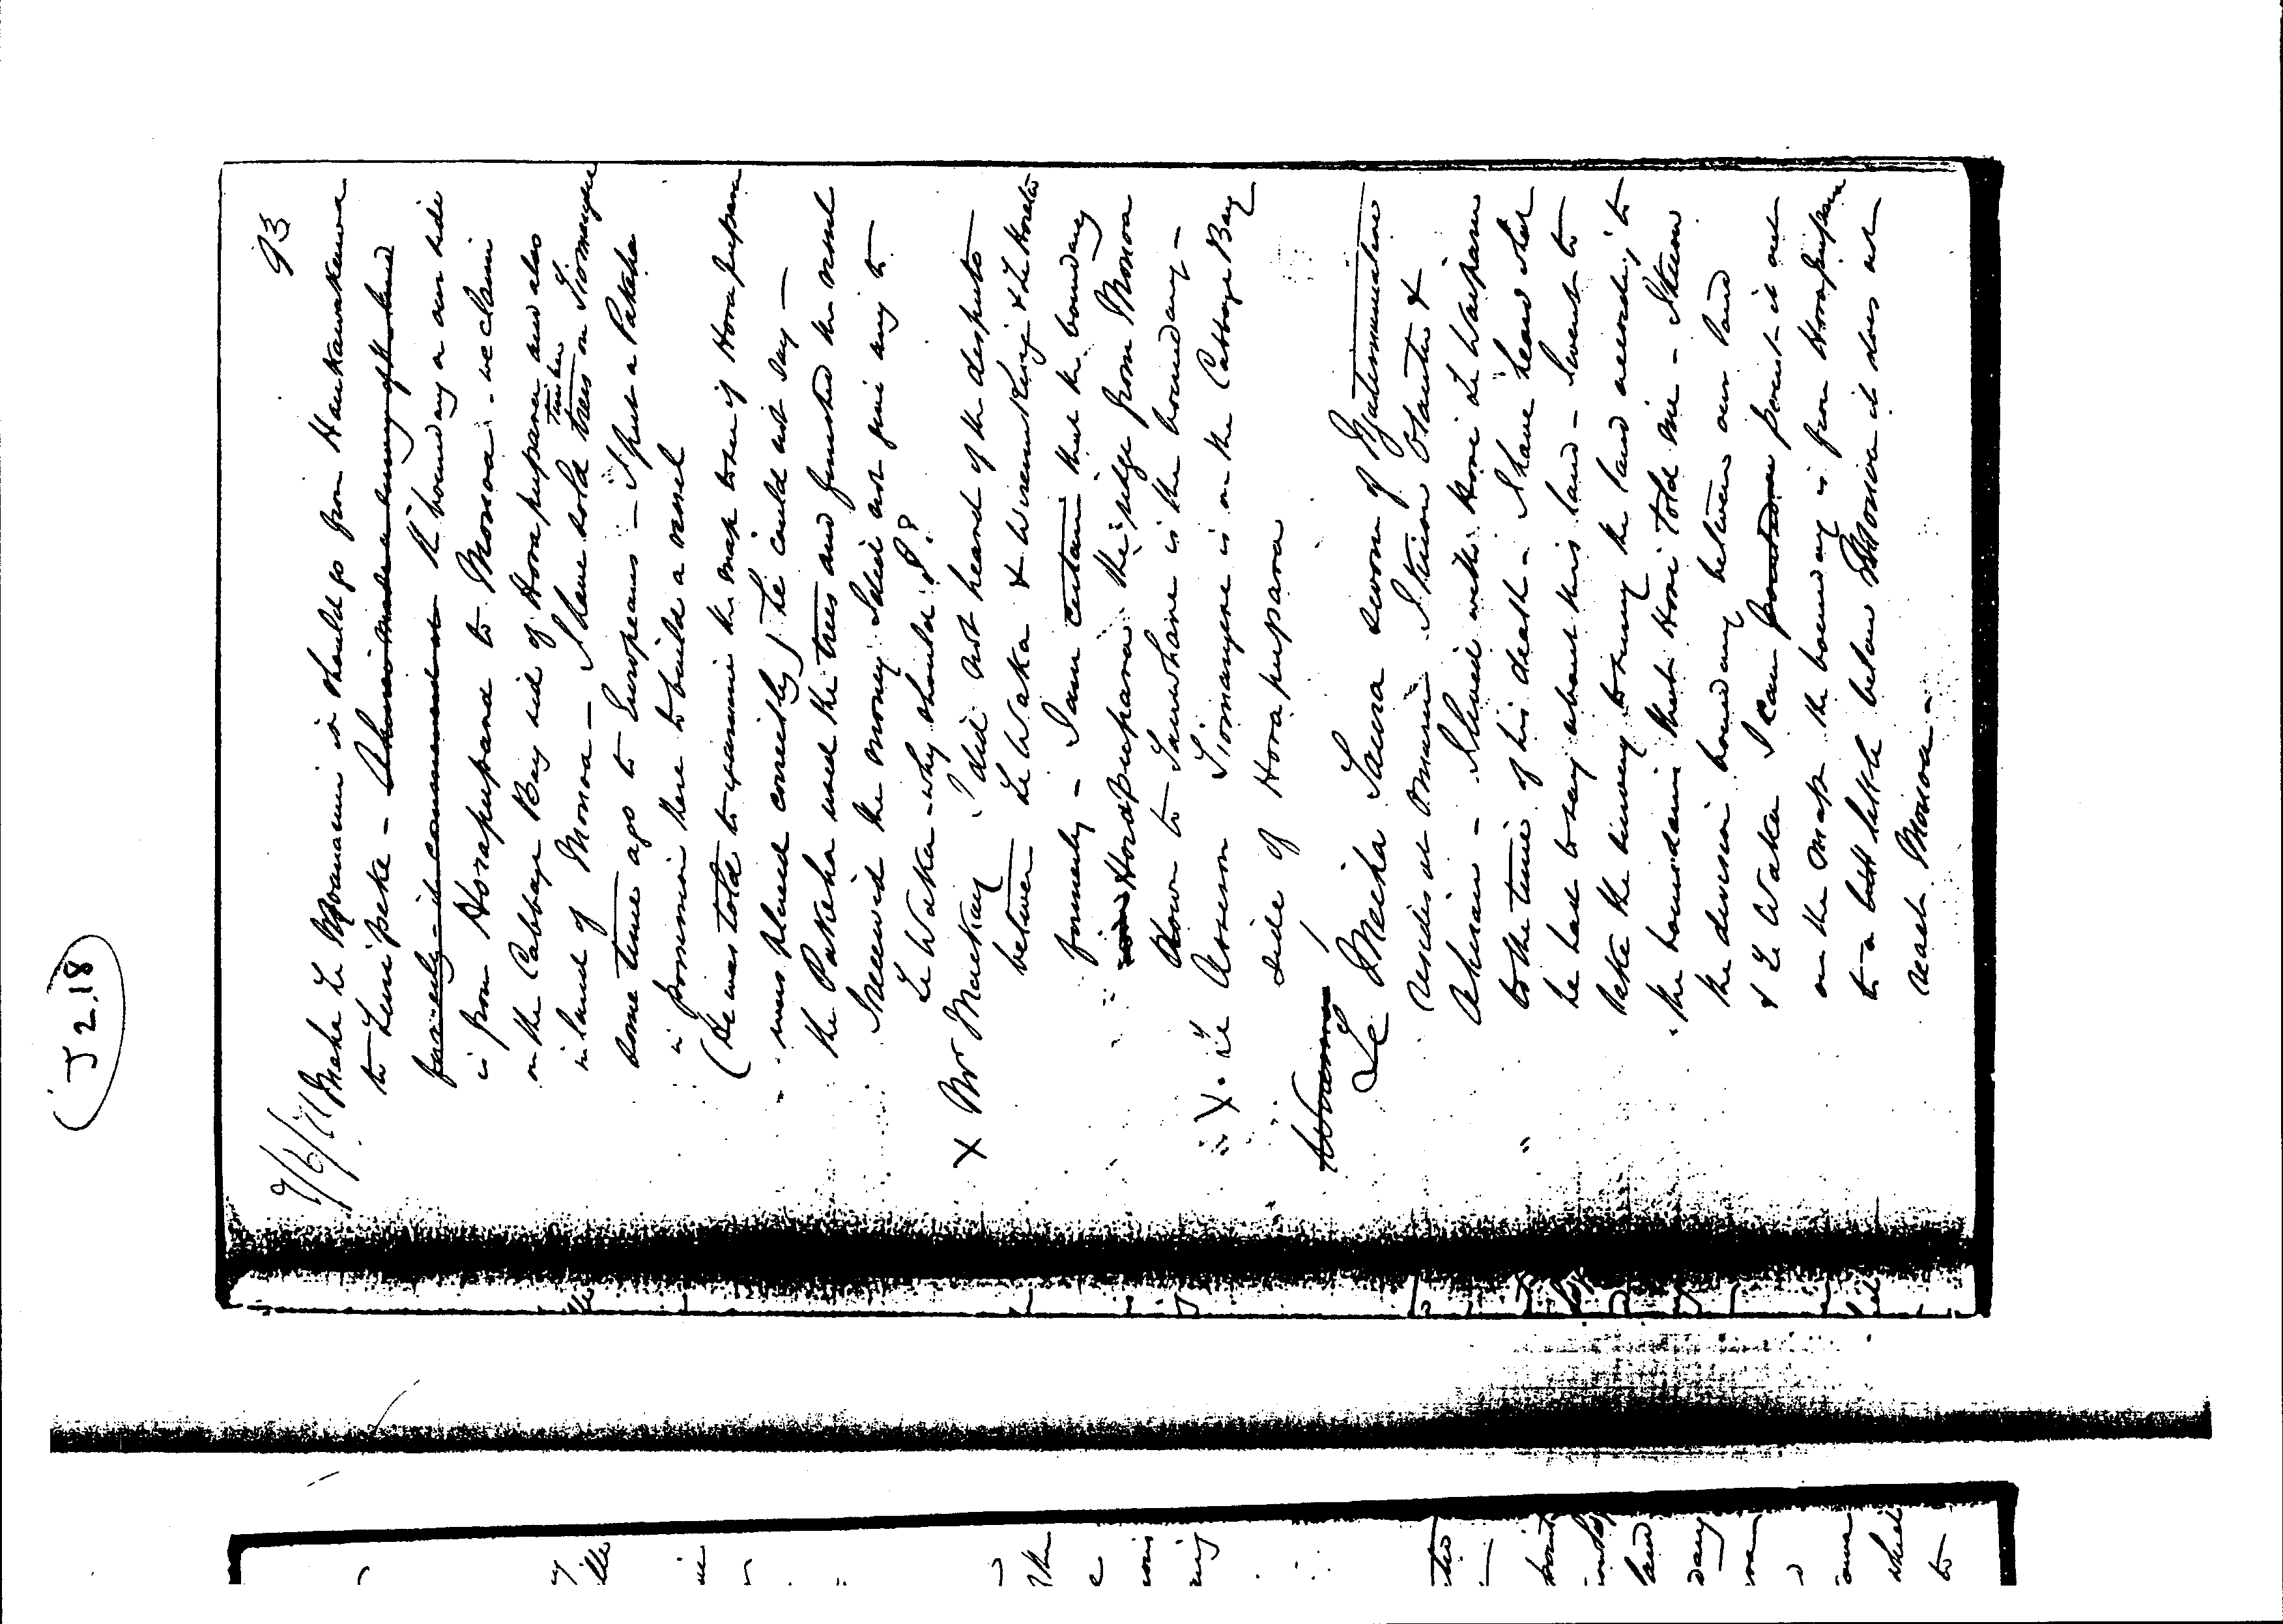 J 2.18
93
7/6/71 Meha Te Moananui it should go from Haukawakawa
to Temipeka - 
formerly - it commenced at the boundary on our side
is from Horapupara to Moewa - we claim
on the Cabbage Bay side of Horapupara and also
inland of Monoa - I have sold timber trees on Tiomangu
some time ago to Europeans - I put a Pakeha
in possession there to build a vessel
(He was told to examine the map to see if Horapupara
was placed correctly) he could not say -
the Pakeha used the trees and finished the vessel
I received the money I did not give any to
Te Waka - why should I?
X Mr Mackay I did not heard of the disputes
between Te Waka & Wiremu King & Te Horeta
formerly - I am certain that the boundary
Horapupara the ridge from Monoa
down to Tauwhare is the boundary -
X. il Assessor Tiomangu is on the Cabbage Bay
side of Horapupara
Te Meiha Taura sworn of Ngatimaru
resides at Omaru I know &
Ahurei - I lived with Hori Te Waipari
to the time of his death - I have heard what
he had to say about this land - I went to
take the survey to survey the land according to
the boundaries that Hori told me - I know
the division boundary between our land
& Te Waka I can point it out
on the map the boundary is from Horapupara
to a little below Monoa it does not
reach Monoa -